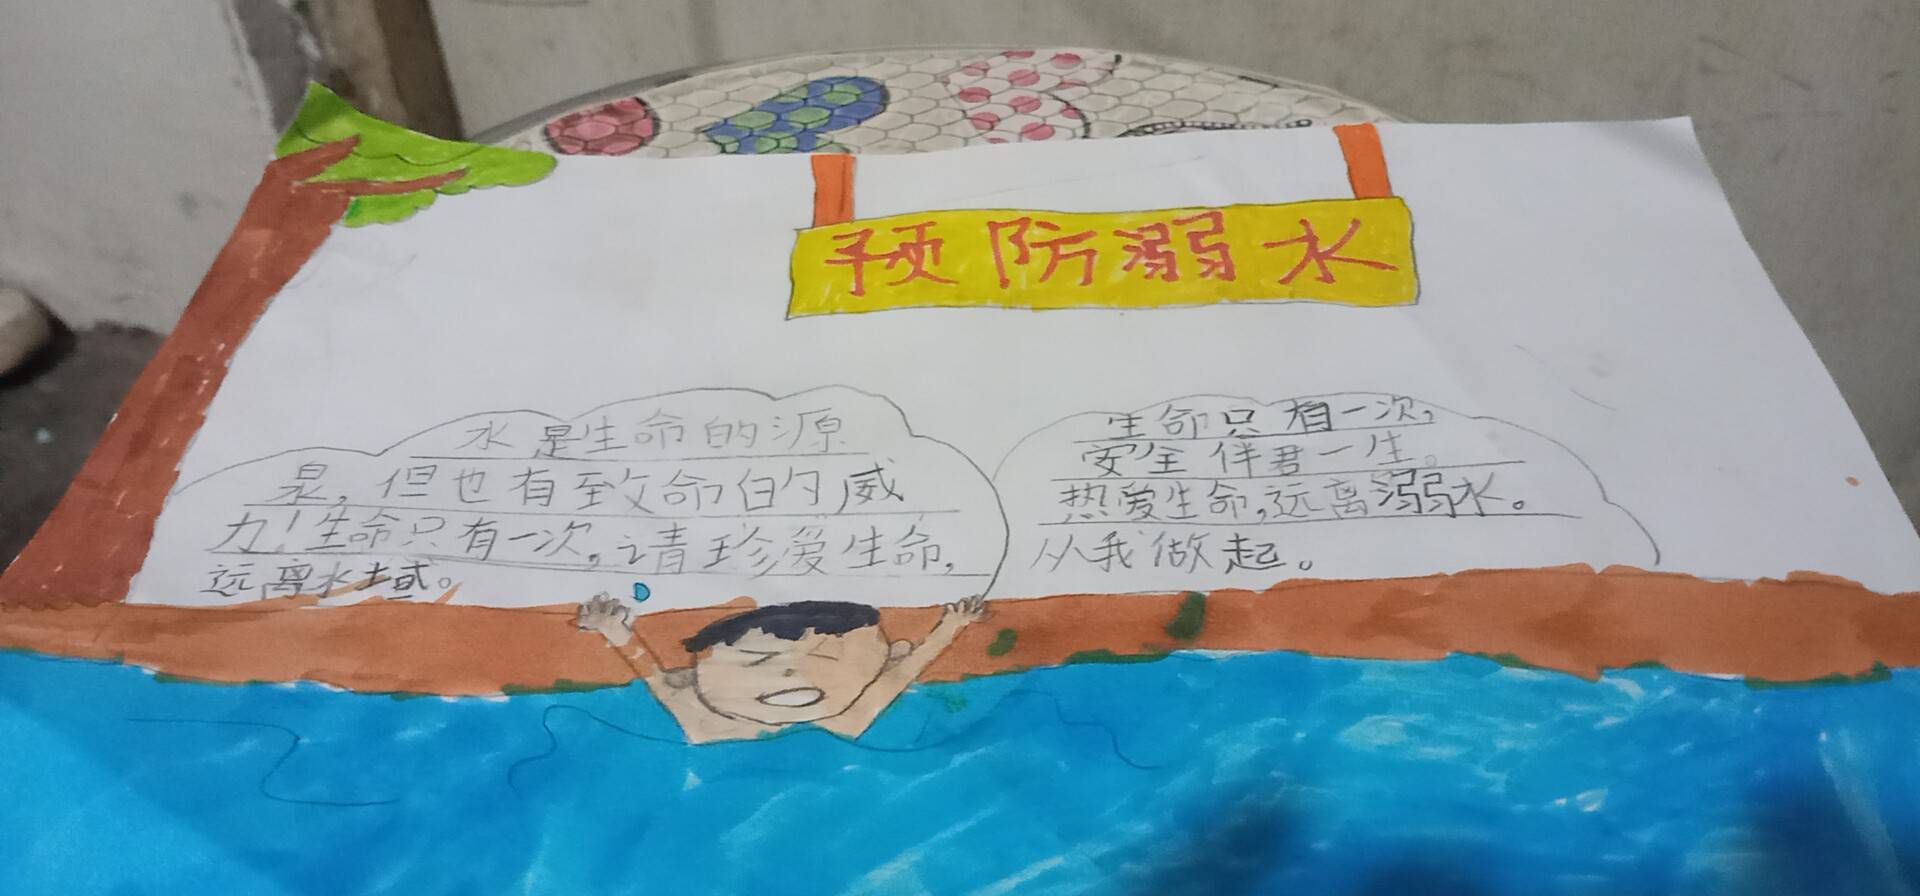 预防溺水
水是生命的源
泉,但也有致命的威
力!生命只有一次,请珍爱生命,
远离水域。
生命只有一次,
安全伴君一生。
热爱生命,远离溺水。
从我做起。